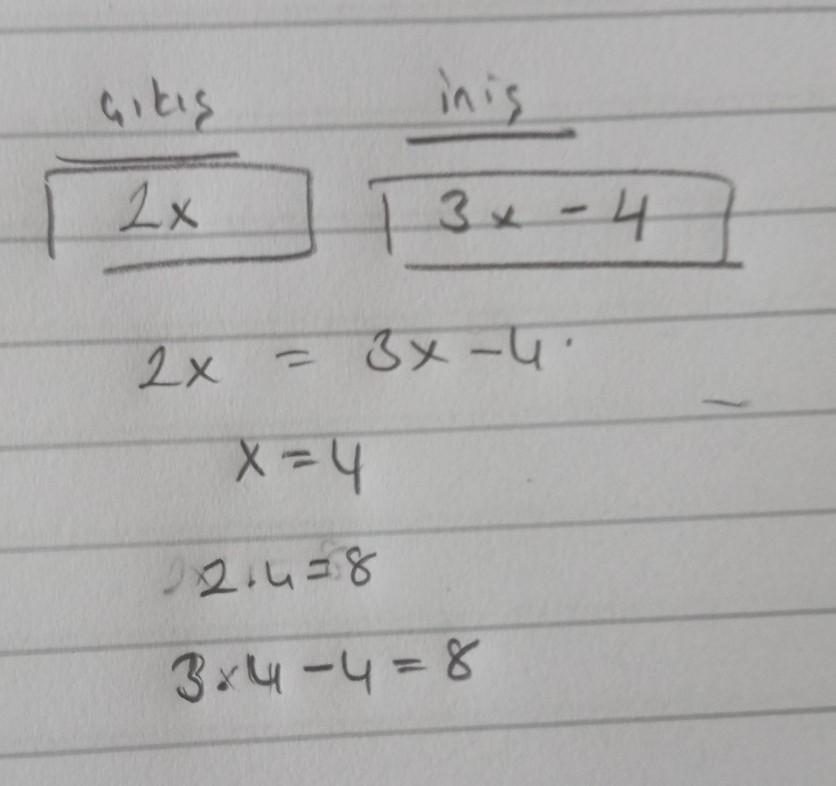 çıkış iniş
2x 3x - 4
2x = 3x - 4
x = 4
2.4 = 8
3x4 - 4 = 8